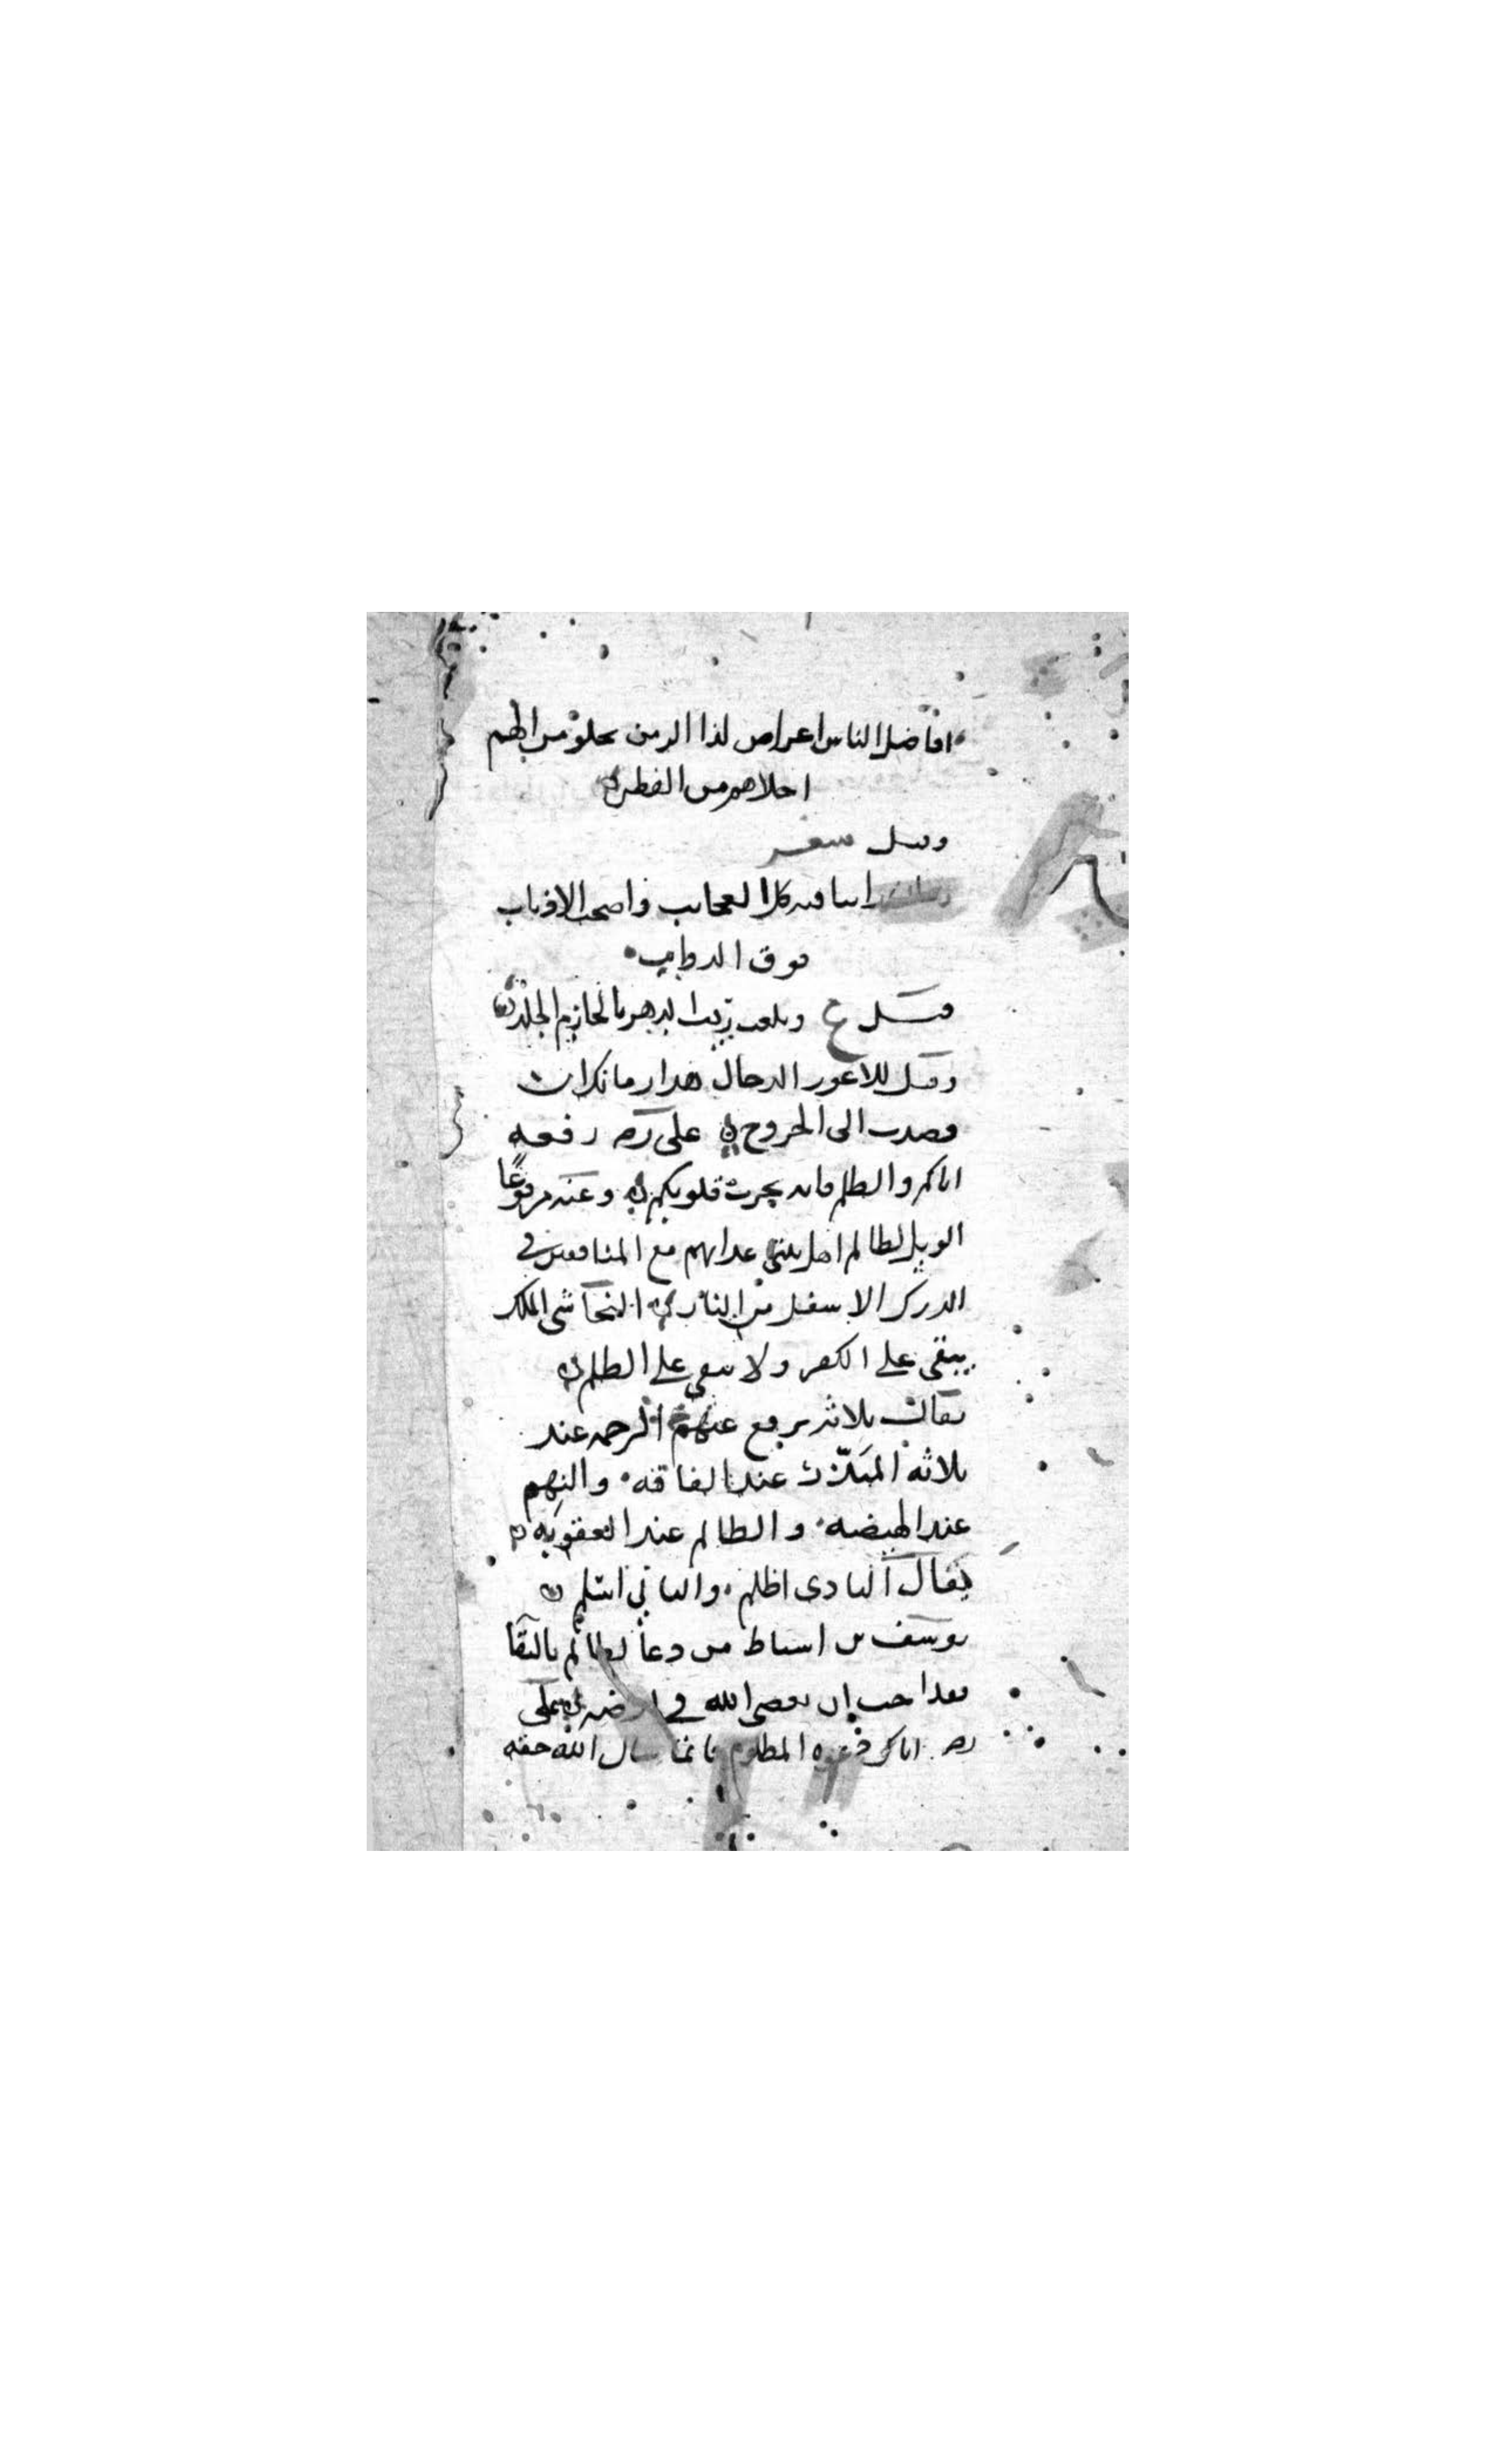 افاضل الناس اعراض لذا الزمن يخلو من الهم
اخلاهم من الفطن
وقيل شعر
راينا فيه كل العجايب واصحت الاذناب
فوق الذوايب
قيل ع وتلعب ريب الدهر بالحازم الجلد
وقيل للاعور الدجال هذا زمانك ان
قصدت الى الخروج على رصه رفعه
اياكم والظلم فانه يخرب قلوبكم وعنه مرفوعًا
الويل لظالم اهل بيتى عذابهم مع المنافقين في
الدرك الاسفل من النار النجاشى الملك
يبقى على الكفر ولا يبقى على الظلم
يقال ثلاثة يرفع عنهم الرحمه عند
ثلاثه المبذّر عند الفاقه والنهم
عند الهيضه والظالم عند العقوبه
يقال البادى اظلم والثانى اسلم
يوسف بن اسباط من دعا لظالم بالبقآ
فقد احب ان يعصى الله في ارضه على
رصه اياكم دعوه المظلوم فانما سال الله حقه